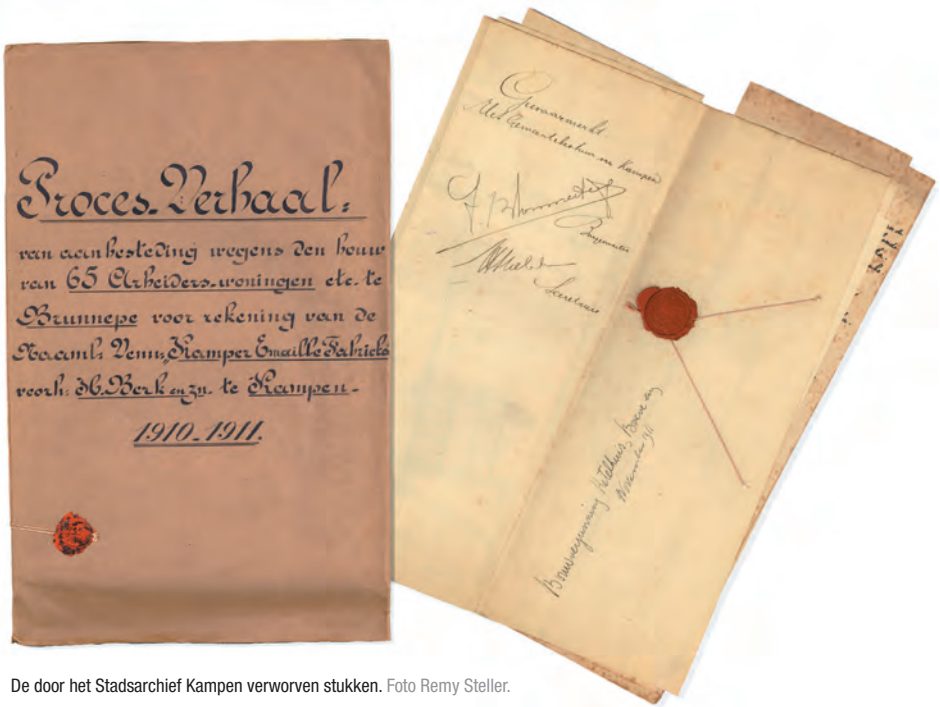 Proces-Verhaal:
van aanbesteding wegens den bouw
van 65 Arbeiders-woningen etc. te
Brunnepe voor rekening van de
Naaml: Venn: Kamper Emaille Fabriek
voorh: H. Berk en zn. te Kampen-
1910-1911.
Gewaarmerkt
Het Gemeentebestuur van Kampen
Burgemeester
Secretaris
Bouwvergunning Ketelhuis,
November
De door het Stadsarchief Kampen verworven stukken. Foto Remy Steller.